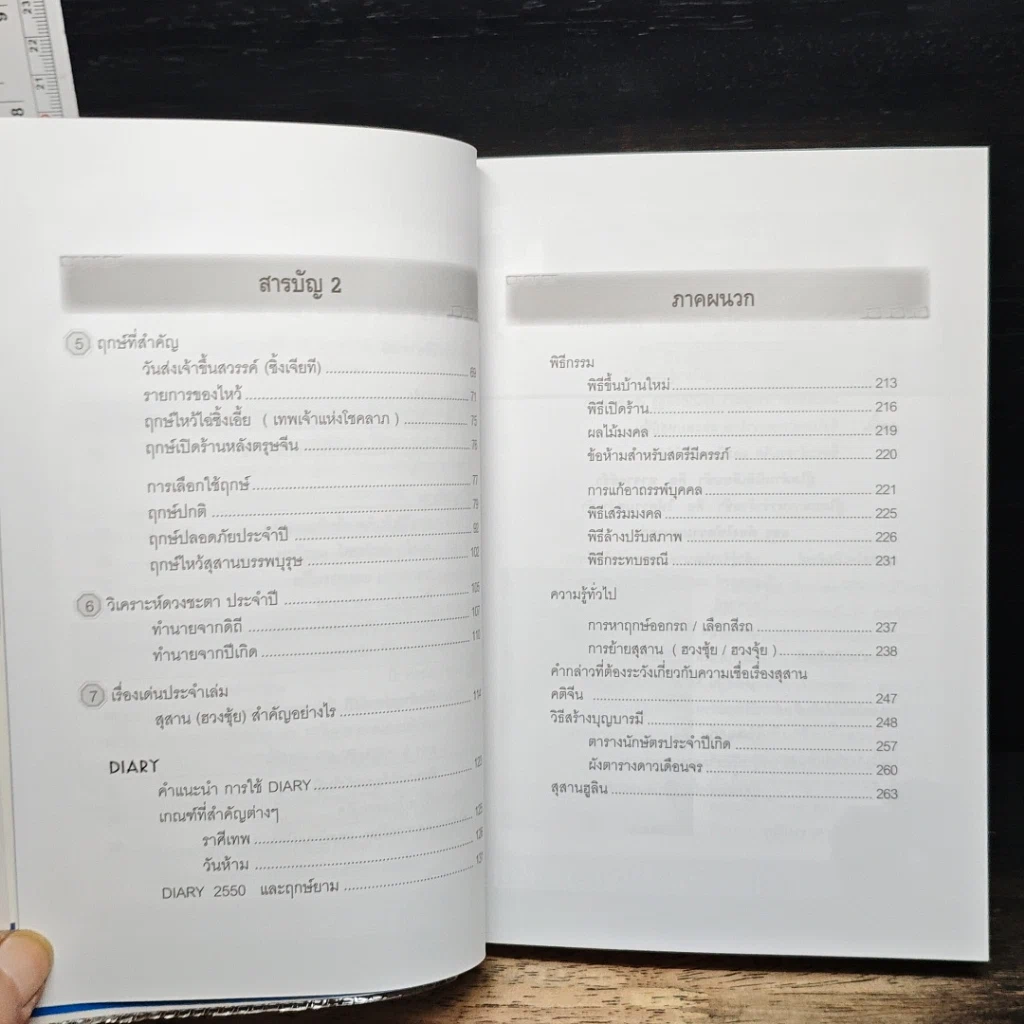 สารบัญ 2
5 ฤกษ์ที่สำคัญ
วันส่งเจ้าขึ้นสวรรค์ (ซิ้งเจียที) 69
รายการของไหว้ 71
ฤกษ์ไหว้ไฉ่ซิ้งเอี้ย ( เทพเจ้าแห่งโชคลาภ ) 75
ฤกษ์เปิดร้านหลังตรุษจีน 76
การเลือกใช้ฤกษ์ 77
ฤกษ์ปกติ 79
ฤกษ์ปลอดภัยประจำปี
ฤกษ์ไหว้สุสานบรรพบุรุษ 102
6 วิเคราะห์ดวงชะตา ประจำปี 105
ทำนายจากดิถี 107
ทำนายจากปีเกิด 110
7 เรื่องเด่นประจำเล่ม
สุสาน (ฮวงซุ้ย) สำคัญอย่างไร 114
DIARY
คำแนะนำ การใช้ DIARY
เกณฑ์ที่สำคัญต่างๆ
ราศีเทพ
วันห้าม
DIARY 2550 และฤกษ์ยาม
ภาคผนวก
พิธีกรรม
พิธีขึ้นบ้านใหม่ 213
พิธีเปิดร้าน 216
ผลไม้มงคล 219
ข้อห้ามสำหรับสตรีมีครรภ์ 220
การแก้อาถรรพ์บุคคล 221
พิธีเสริมมงคล 225
พิธีล้างปรับสภาพ 226
พิธีกระทบธรณี 231
ความรู้ทั่วไป
การหาฤกษ์ออกรถ / เลือกสีรถ 237
การย้ายสุสาน ( ฮวงซุ้ย / ฮวงจุ้ย ) 238
คำกล่าวที่ต้องระวังเกี่ยวกับความเชื่อเรื่องสุสาน
คติจีน 247
วิธีสร้างบุญบารมี 248
ตารางนักษัตรประจำปีเกิด 257
ผังตารางดาวเดือนจร 260
สุสานฮูลิน 263